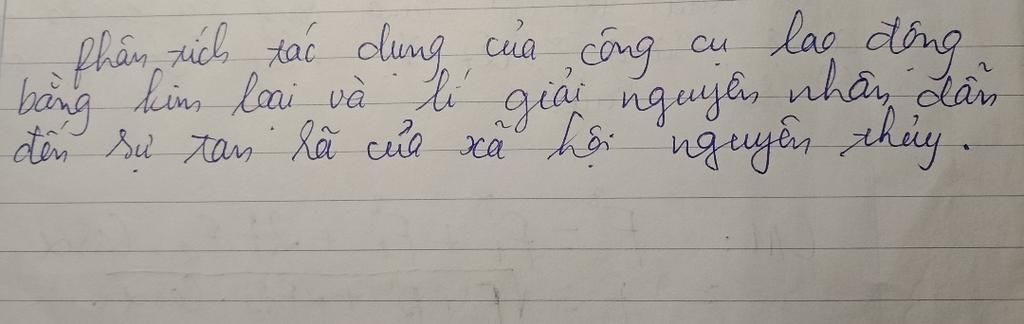 Phân tích tác dụng của công cụ lao động
bằng kim loại và lí giải nguyên nhân dẫn
đến sự tan rã của xã hội nguyên thủy.